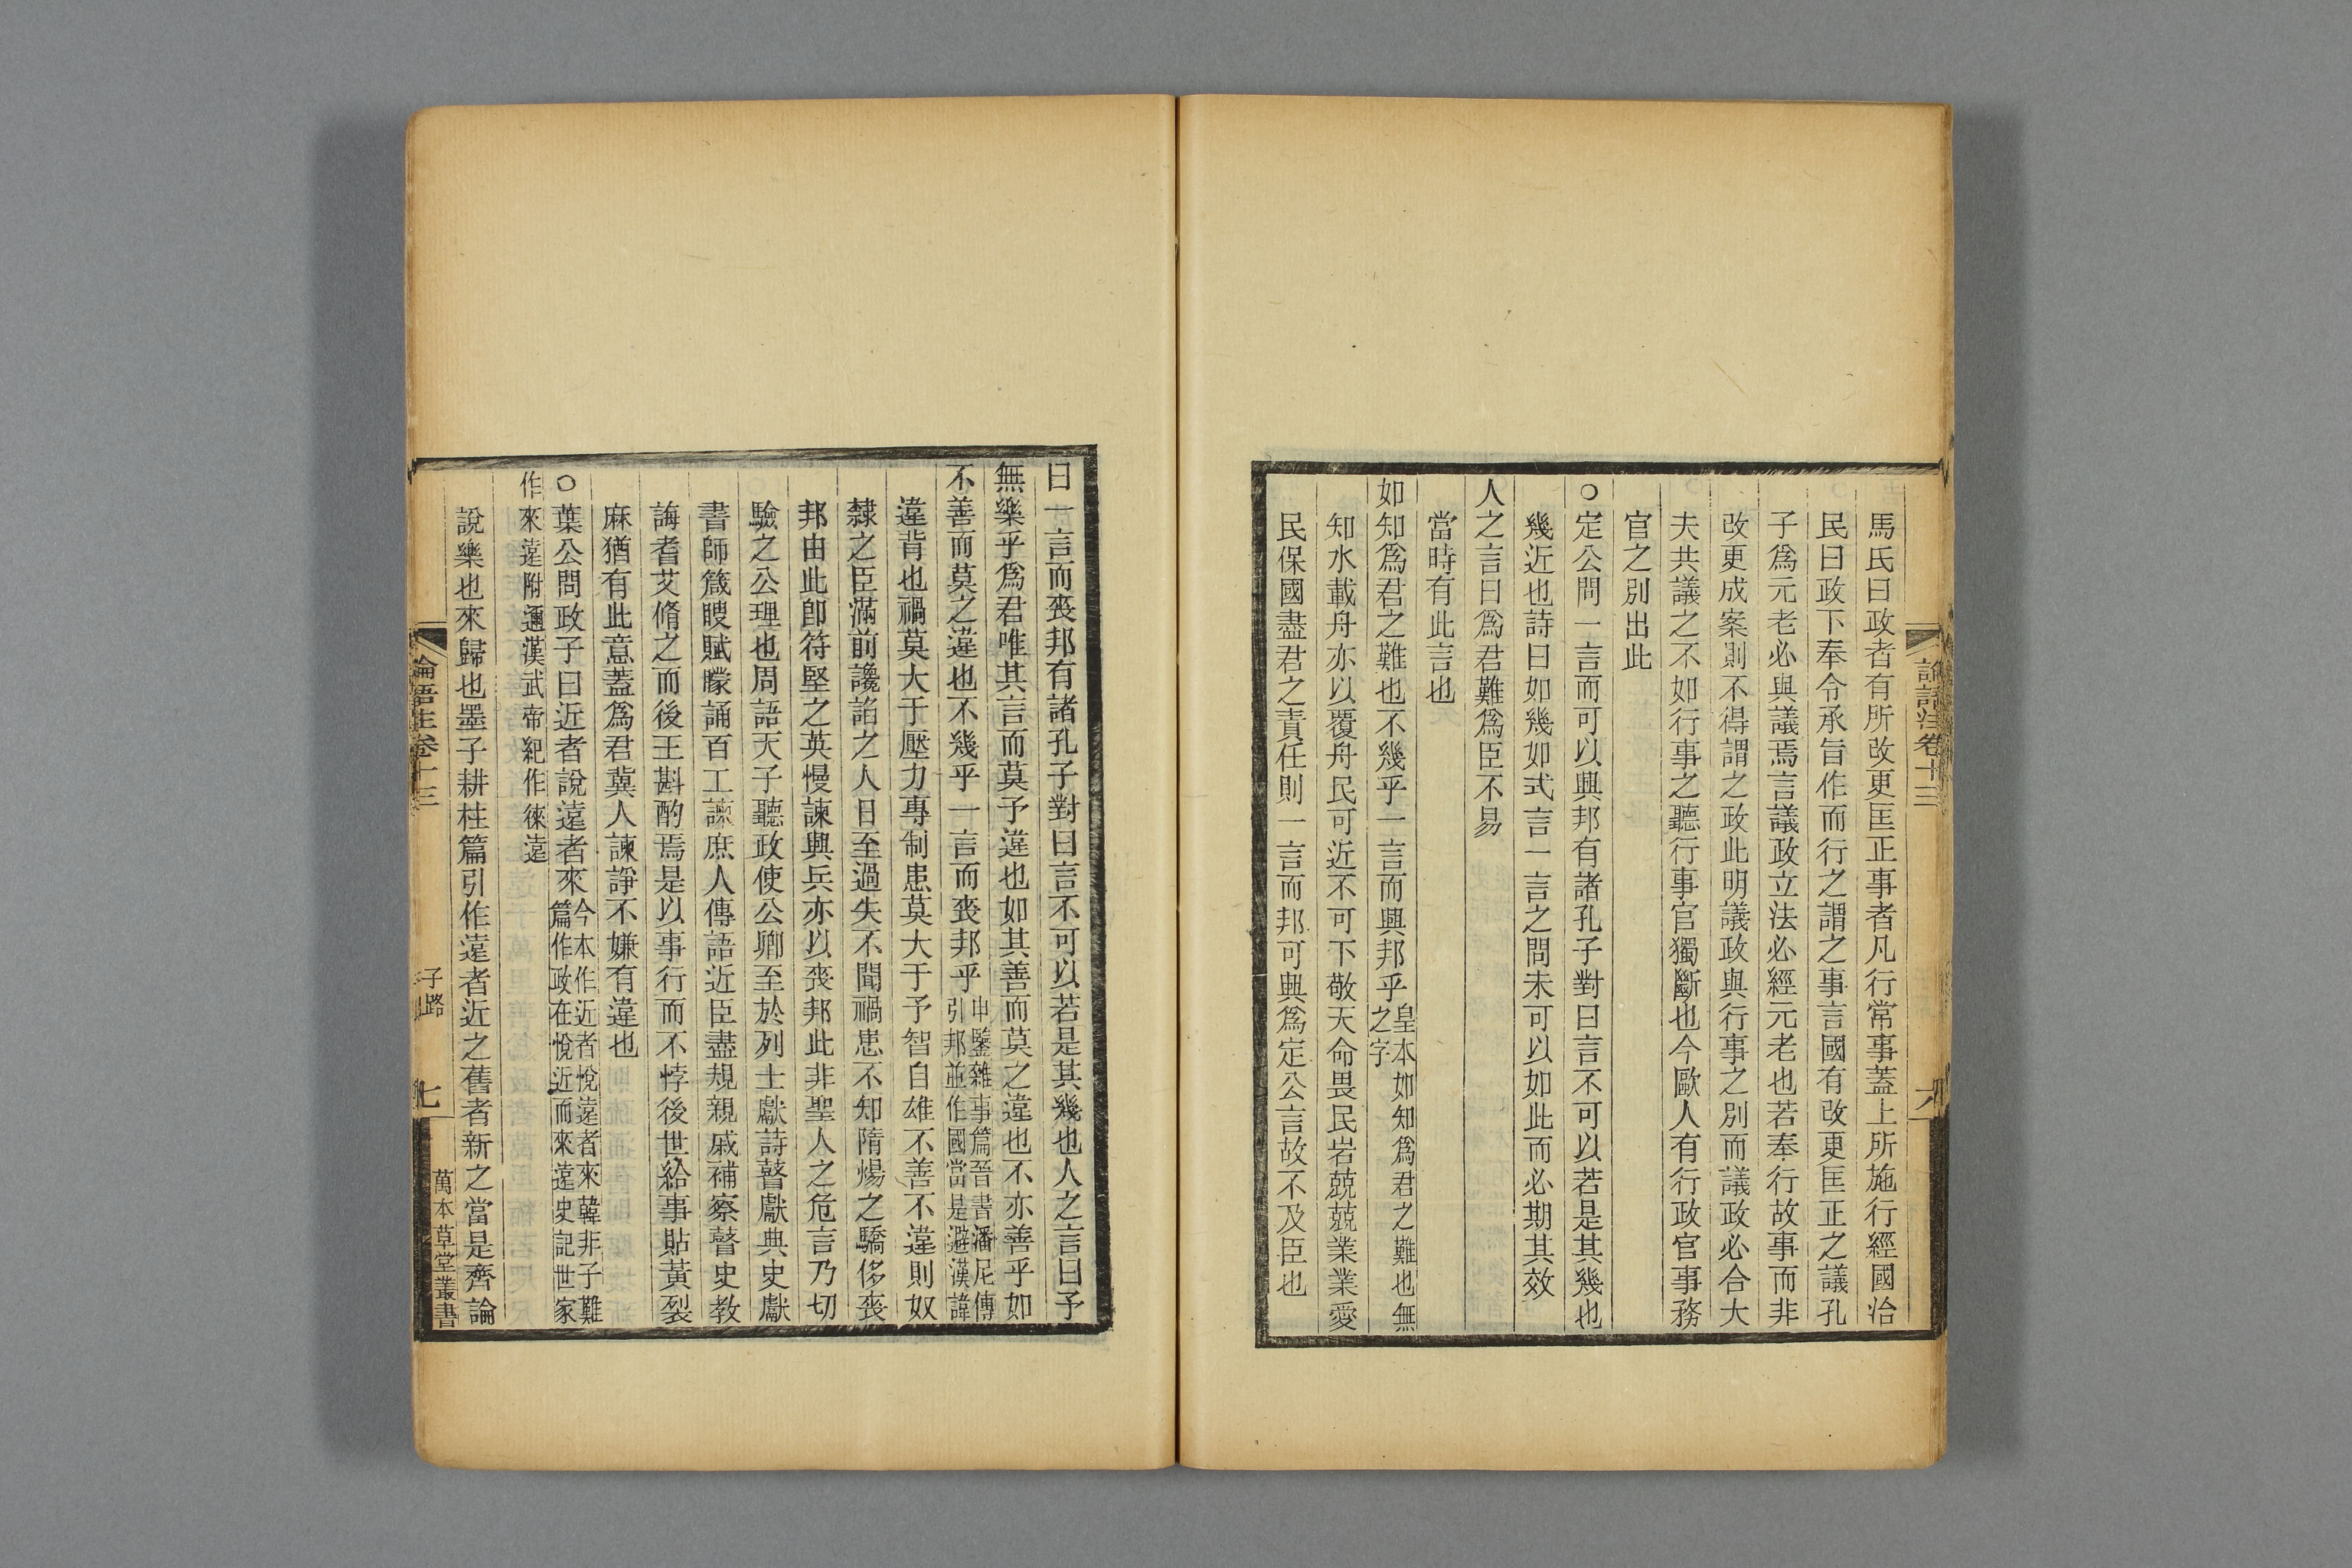 論語注卷十三
六
馬氏曰政者有所改更匡正事者凡行常事蓋上所施行經國治
民曰政下奉令承旨作而行之謂之事言國有改更匡正之議孔
子爲元老必與議焉言議政立法必經元老也若奉行故事而非
改更成案則不得謂之政此明議政與行事之別而議政必合大
夫共議之不如行事之聽行事官獨斷也今歐人有行政官事務
官之別出此
○定公問一言而可以興邦有諸孔子對曰言不可以若是其幾也
幾近也詩曰如幾如式言一言之間未可以如此而必期其效
人之言曰爲君難爲臣不易
當時有此言也
如知爲君之難也不幾乎一言而興邦乎皇本如知爲君之難也無之字
知水載舟亦以覆舟民可近不可下敬天命畏民岩兢兢業業愛
民保國盡君之責任則一言而邦可興爲定公言故不及臣也
曰一言而喪邦有諸孔子對曰言不可以若是其幾也人之言曰予
無樂乎爲君唯其言而莫予違也如其善而莫之違也不亦善乎如
不善而莫之違也不幾乎一言而喪邦乎申鑒雜事篇晉書潘尼傳引邦並作國當是避漢諱
違背也禍莫大于壓力專制患莫大于予智自雄不善不違則奴
隸之臣滿前讒諂之人日至過失不聞禍患不知隋煬之驕侈喪
邦由此卽符堅之英慢諫興兵亦以喪邦此非聖人之危言乃切
驗之公理也周語天子聽政使公卿至於列士獻詩瞽獻典史獻
書師箴瞍賦矇誦百工諫庶人傳語近臣盡規親戚補察瞽史教
誨耆艾脩之而後王斟酌焉是以事行而不悖後世給事貼黃裂
麻猶有此意蓋爲君冀人諫諍不嫌有違也
○葉公問政子曰近者說遠者來今本作近者悅遠者來韓非子難篇作政在悅近而來遠史記世家
作來遠附邇漢武帝紀作徠遠
說樂也來歸也墨子耕柱篇引作遠者近之舊者新之當是齊論
論語注卷十三
子路
七
萬本草堂叢書